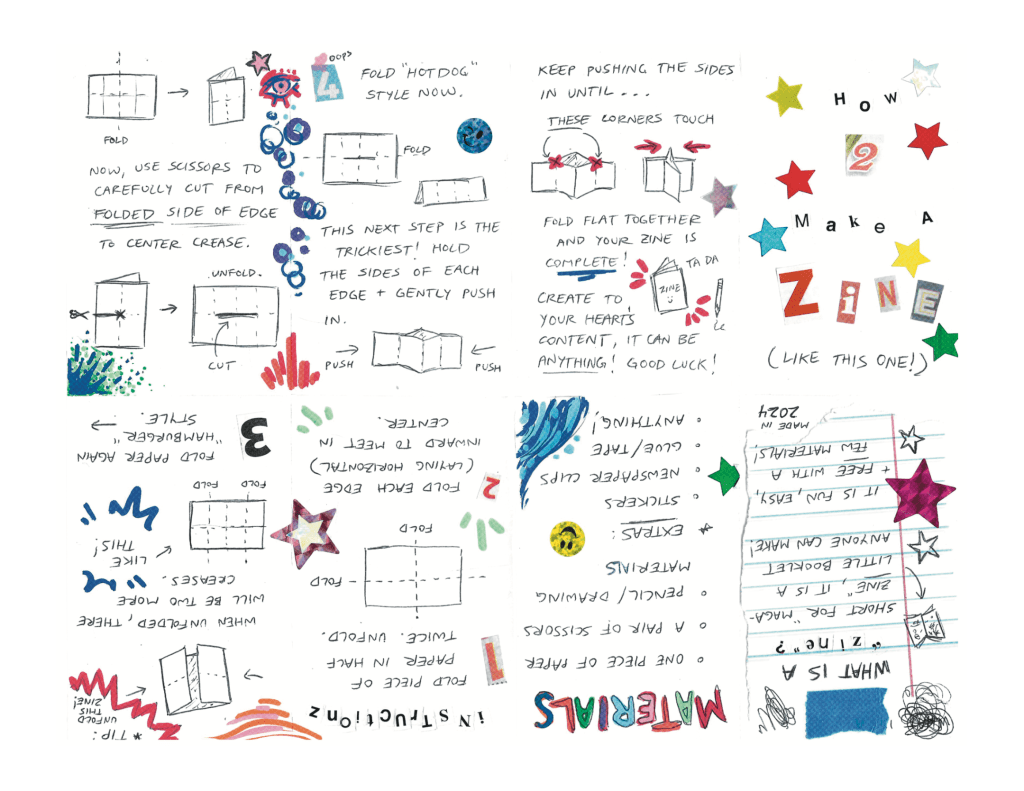 How
2
Make A
ZiNE
(LIKE THIS ONE!)
WHAT IS A
"zine"?
SHORT FOR "MAGA-
ZINE", IT IS A
LITTLE BOOKLET
ANYONE CAN MAKE!
IT IS FUN, EASY,
+ FREE WITH A
FEW MATERIALS!
MADE IN
2024
MATERIALS
° ONE PIECE OF PAPER
° A PAIR OF SCISSORS
° PENCIL/DRAWING
MATERIALS
* EXTRAS:
° STICKERS
° NEWSPAPER CLIPS
° GLUE/TAPE
° ANYTHING!
iNSTrUCtiOnz
1
FOLD PIECE OF
PAPER IN HALF
TWICE. UNFOLD.
FOLD
FOLD
2
FOLD EACH EDGE
(LAYING HORIZONTAL)
INWARD TO MEET IN
CENTER.
*TIP:
UNFOLD
THIS
ZINE!
WHEN UNFOLDED, THERE
WILL BE TWO MORE
CREASES.
LIKE
THIS!
FOLD FOLD
3
FOLD PAPER AGAIN
"HAMBURGER"
STYLE.
FOLD
NOW, USE SCISSORS TO
CAREFULLY CUT FROM
FOLDED SIDE OF EDGE
TO CENTER CREASE.
UNFOLD.
CUT
OOPS
4
FOLD "HOTDOG"
STYLE NOW.
FOLD
THIS NEXT STEP IS THE
TRICKIEST! HOLD
THE SIDES OF EACH
EDGE + GENTLY PUSH
IN.
PUSH PUSH
KEEP PUSHING THE SIDES
IN UNTIL...
THESE CORNERS TOUCH
FOLD FLAT TOGETHER
AND YOUR ZINE IS
COMPLETE!
TA DA
ZINE
CREATE TO
YOUR HEART'S
CONTENT, IT CAN BE
ANYTHING! GOOD LUCK!